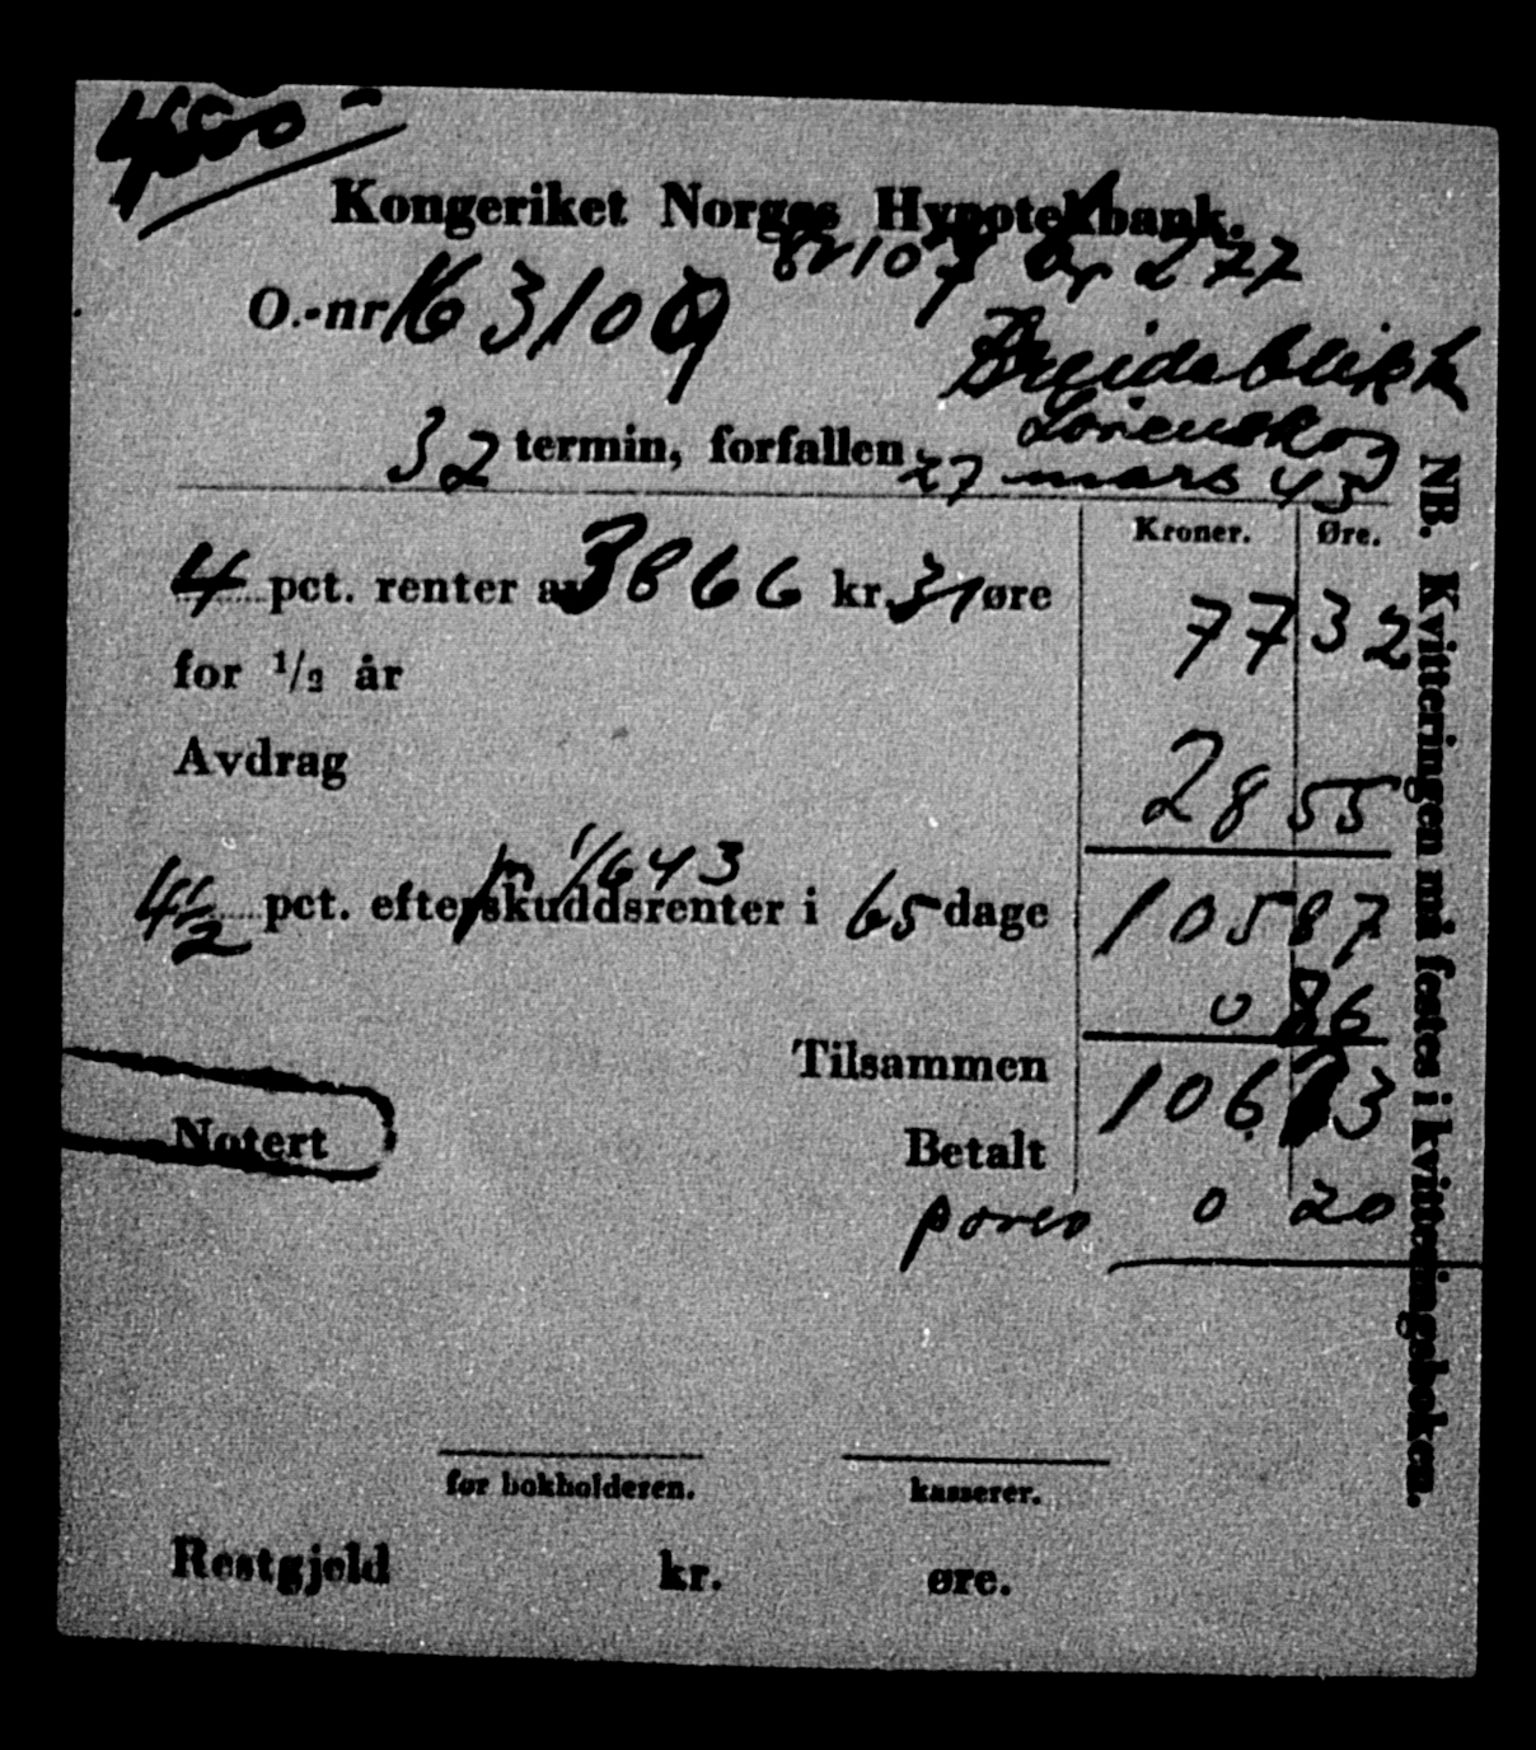 4500 -
Kongeriket Norges Hypotekbank.
gr 107 br 277
O.-nr 163109
Breidablikk
Lørenskog
32 termin, forfallen 27 mars 43
Kroner. Øre.
4 pct. renter av 3866 kr. 31 øre 77 32
for 1/2 år
Avdrag 28 55
pr 1/6 43
4 1/2 pct. efterskuddsrenter i 65 dage 105 87
0 86
Tilsammen 106 73
Notert
Betalt
porto 0 20
for bokholderen. kasserer.
Restgjeld kr. øre.
NB. Kvitteringen må festes i kvitteringsboken.